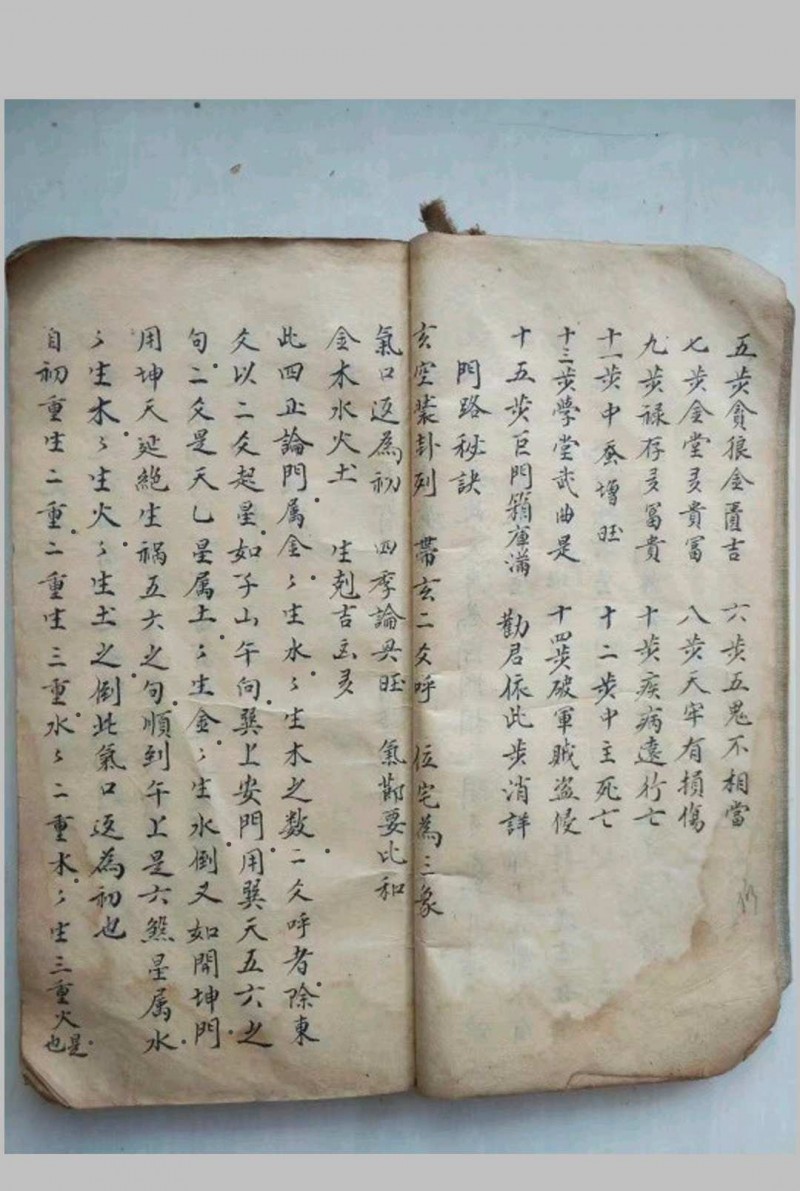 五步貪狼金匱吉 六步五鬼不相當
七步金堂多貴富 八步天牢有損傷
九步祿存多富貴 十步疾病遠行亡
十一步中蚕增旺 十二步中主死亡
十三步學堂武曲是 十四步破軍賊盗侵
十五步巨門箱庫滿 勸君依此步消詳
門路秘訣
玄空裝卦列 帶玄二爻呼 位宅為三象
氣口返為初 四季論興旺 氣鄰要比和
金木水火土 生剋吉玄多
此四正論門属金〻生水〻生木之数二爻呼者除東
爻以二爻起星如子山午向巽上安門用巽天五六之
句二爻是天乙星属土〻生金〻生水倒又如開坤門
用坤天延絶生禍五六之句順到午上是六煞星属水
〻生木〻生火〻生土之倒此氣口返為初也
自初重生二重二重生三重水〻二重木〻生三重火是也